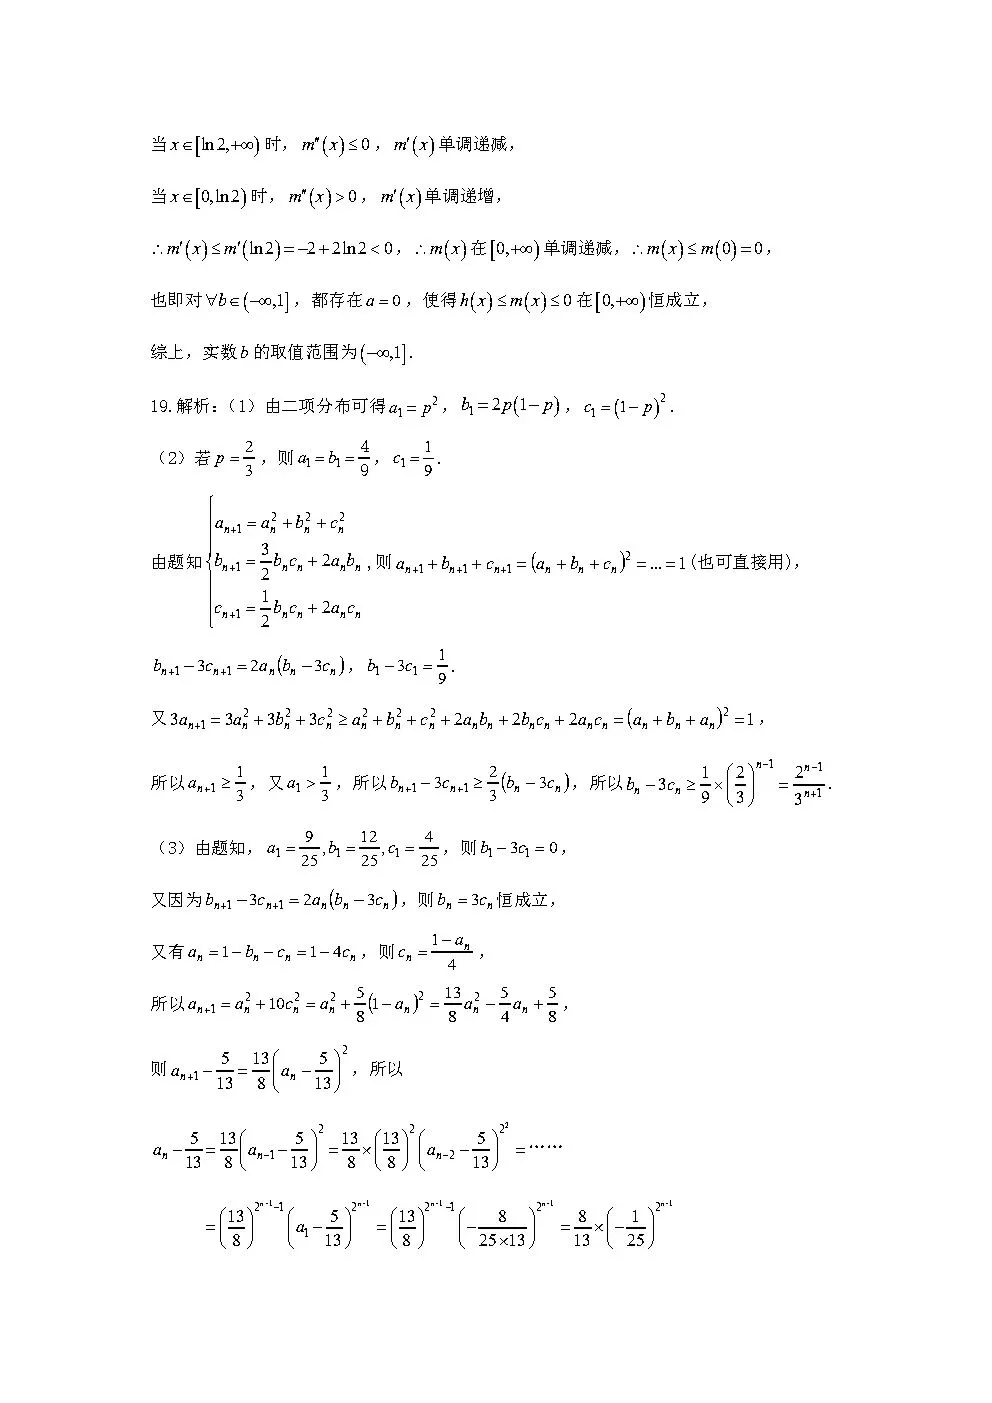 当 x∈[ln2,+∞) 时，m″(x)≤0，m′(x)单调递减，
当 x∈[0,ln2) 时，m″(x)>0，m′(x)单调递增，
∴m′(x)≤m′(ln2)=−2+2ln2<0，∴m(x)在[0,+∞)单调递减，∴m(x)≤m(0)=0，
也即对∀b∈(−∞,1]，都存在a=0，使得h(x)≤m(x)≤0在[0,+∞)恒成立，
综上，实数b的取值范围为(−∞,1].
19.解析：（1）由二项分布可得a₁=p²，b₁=2p(1−p)，c₁=(1−p)².
（2）若p=2/3，则a₁=b₁=4/9，c₁=1/9.
由题知{a_{n+1}=a_n²+b_n²+c_n²
b_{n+1}=3/2 b_n c_n+2a_n b_n
c_{n+1}=1/2 b_n c_n+2a_n c_n
,则a_{n+1}+b_{n+1}+c_{n+1}=(a_n+b_n+c_n)²=...=1(也可直接用)，
b_{n+1}−3c_{n+1}=2a_n(b_n−3c_n)，b₁−3c₁=1/9.
又3a_{n+1}=3a_n²+3b_n²+3c_n²≥a_n²+b_n²+c_n²+2a_n b_n+2b_n c_n+2a_n c_n=(a_n+b_n+a_n)²=1，
所以a_{n+1}≥1/3，又a₁>1/3，所以b_{n+1}−3c_{n+1}≥2/3(b_n−3c_n)，所以b_n−3c_n≥1/9×(2/3)^{n−1}=2^{n−1}/3^{n+1}.
（3）由题知，a₁=9/25,b₁=12/25,c₁=4/25，则b₁−3c₁=0，
又因为b_{n+1}−3c_{n+1}=2a_n(b_n−3c_n)，则b_n=3c_n恒成立，
又有a_n=1−b_n−c_n=1−4c_n，则c_n=(1−a_n)/4，
所以a_{n+1}=a_n²+10c_n²=a_n²+5/8(1−a_n)²=13/8 a_n²−5/4 a_n+5/8，
则a_{n+1}−5/13=13/8(a_n−5/13)²，所以
a_n−5/13=13/8(a_{n−1}−5/13)²=13/8×(13/8)²(a_{n−2}−5/13)^{2²}=……
=(13/8)^{2^{n−1}−1}(a₁−5/13)^{2^{n−1}}=(13/8)^{2^{n−1}−1}(−8/(25×13))^{2^{n−1}}=8/13×(−1/25)^{2^{n−1}}